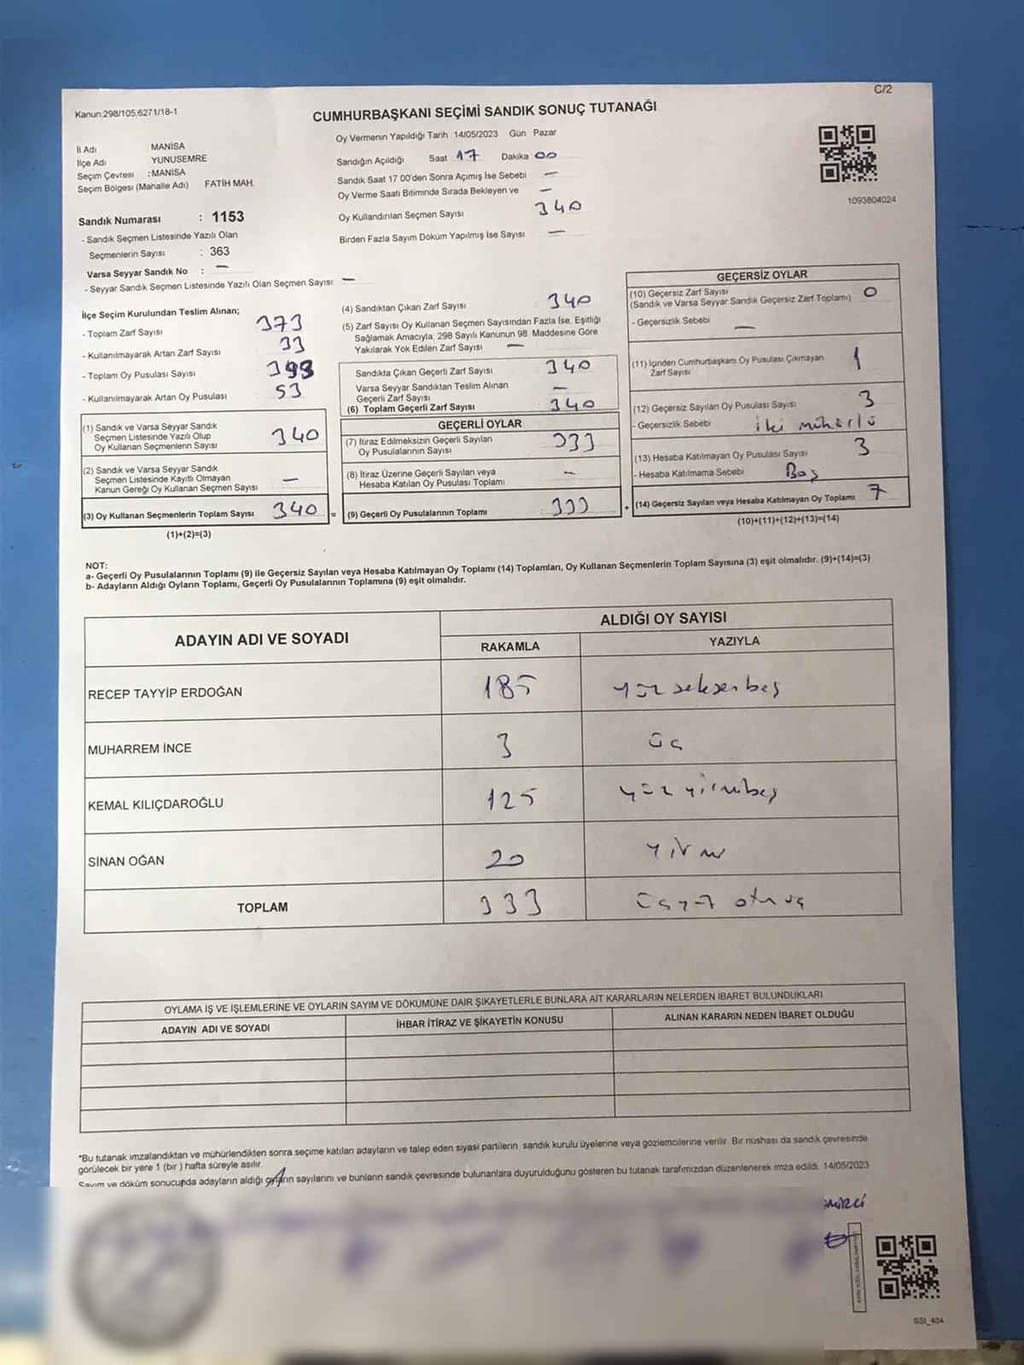 C/2
Kanun:298/105,6271/18-1
CUMHURBAŞKANI SEÇİMİ SANDIK SONUÇ TUTANAĞI
İl Adı MANİSA
İlçe Adı YUNUSEMRE
Seçim Çevresi : MANİSA
Seçim Bölgesi (Mahalle Adı) FATİH MAH.
Oy Vermenin Yapıldığı Tarih 14/05/2023 Gün Pazar
Sandığın Açıldığı Saat 17 Dakika 00
Sandık Saat 17.00'den Sonra Açımış İse Sebebi —
Oy Verme Saati Bitiminde Sırada Bekleyen ve —
Oy Kullandırılan Seçmen Sayısı 340
Birden Fazla Sayım Döküm Yapılmış İse Sayısı —
1093804024
Sandık Numarası : 1153
- Sandık Seçmen Listesinde Yazılı Olan
Seçmenlerin Sayısı : 363
Varsa Seyyar Sandık No : —
- Seyyar Sandık Seçmen Listesinde Yazılı Olan Seçmen Sayısı: —
İlçe Seçim Kurulundan Teslim Alınan;
- Toplam Zarf Sayısı 373
- Kullanılmayarak Artan Zarf Sayısı 33
- Toplam Oy Pusulası Sayısı 393
- Kullanılmayarak Artan Oy Pusulası 53
(1) Sandık ve Varsa Seyyar Sandık
Seçmen Listesinde Yazılı Olup
Oy Kullanan Seçmenlerin Sayısı 340
(2) Sandık ve Varsa Seyyar Sandık
Seçmen Listesinde Kayıtlı Olmayan
Kanun Gereği Oy Kullanan Seçmen Sayısı —
(3) Oy Kullanan Seçmenlerin Toplam Sayısı 340 =
(1)+(2)=(3)
(4) Sandıktan Çıkan Zarf Sayısı 340
(5) Zarf Sayısı Oy Kullanan Seçmen Sayısından Fazla İse, Eşitliği
Sağlamak Amacıyla, 298 Sayılı Kanunun 98. Maddesine Göre
Yakılarak Yok Edilen Zarf Sayısı —
Sandıkta Çıkan Geçerli Zarf Sayısı 340
Varsa Seyyar Sandıktan Teslim Alınan
Geçerli Zarf Sayısı —
(6) Toplam Geçerli Zarf Sayısı 340
GEÇERLİ OYLAR
(7) İtiraz Edilmeksizin Geçerli Sayılan
Oy Pusulalarının Sayısı 333
(8) İtiraz Üzerine Geçerli Sayılan veya
Hesaba Katılan Oy Pusulası Toplamı —
(9) Geçerli Oy Pusulalarının Toplamı 333 +
GEÇERSİZ OYLAR
(10) Geçersiz Zarf Sayısı
(Sandık ve Varsa Seyyar Sandık Geçersiz Zarf Toplamı) 0
- Geçersizlik Sebebi —
(11) İçinden Cumhurbaşkanı Oy Pusulası Çıkmayan
Zarf Sayısı 1
(12) Geçersiz Sayılan Oy Pusulası Sayısı 3
- Geçersizlik Sebebi iki mühürlü
(13) Hesaba Katılmayan Oy Pusulası Sayısı 3
- Hesaba Katılmama Sebebi Boş
(14) Geçersiz Sayılan veya Hesaba Katılmayan Oy Toplamı 7
(10)+(11)+(12)+(13)=(14)
NOT:
a- Geçerli Oy Pusulalarının Toplamı (9) ile Geçersiz Sayılan veya Hesaba Katılmayan Oy Toplamı (14) Toplamları, Oy Kullanan Seçmenlerin Toplam Sayısına (3) eşit olmalıdır. (9)+(14)=(3)
b- Adayların Aldığı Oyların Toplamı, Geçerli Oy Pusulalarının Toplamına (9) eşit olmalıdır.
ADAYIN ADI VE SOYADI ALDIĞI OY SAYISI
RAKAMLA YAZIYLA
RECEP TAYYİP ERDOĞAN 185 yüz seksenbeş
MUHARREM İNCE 3 üç
KEMAL KILIÇDAROĞLU 125 yüz yirmibeş
SİNAN OĞAN 20 yirmi
TOPLAM 333 üçyüz otuzüç
OYLAMA İŞ VE İŞLEMLERİNE VE OYLARIN SAYIM VE DÖKÜMÜNE DAİR ŞİKAYETLERLE BUNLARA AİT KARARLARIN NELERDEN İBARET BULUNDUKLARI
ADAYIN ADI VE SOYADI İHBAR İTİRAZ VE ŞİKAYETİN KONUSU ALINAN KARARIN NEDEN İBARET OLDUĞU
*Bu tutanak imzalandıktan ve mühürlendikten sonra seçime katılan adayların ve talep eden siyasi partilerin sandık kurulu üyelerine veya gözlemcilerine verilir. Bir nüshası da sandık çevresinde
görülecek bir yere 1 (bir ) hafta süreyle asılır.
Sayım ve döküm sonucunda adayların aldığı oyların sayılarını ve bunların sandık çevresinde bulunanlara duyurulduğunu gösteren bu tutanak tarafımızdan düzenlenerek imza edildi. 14/05/2023